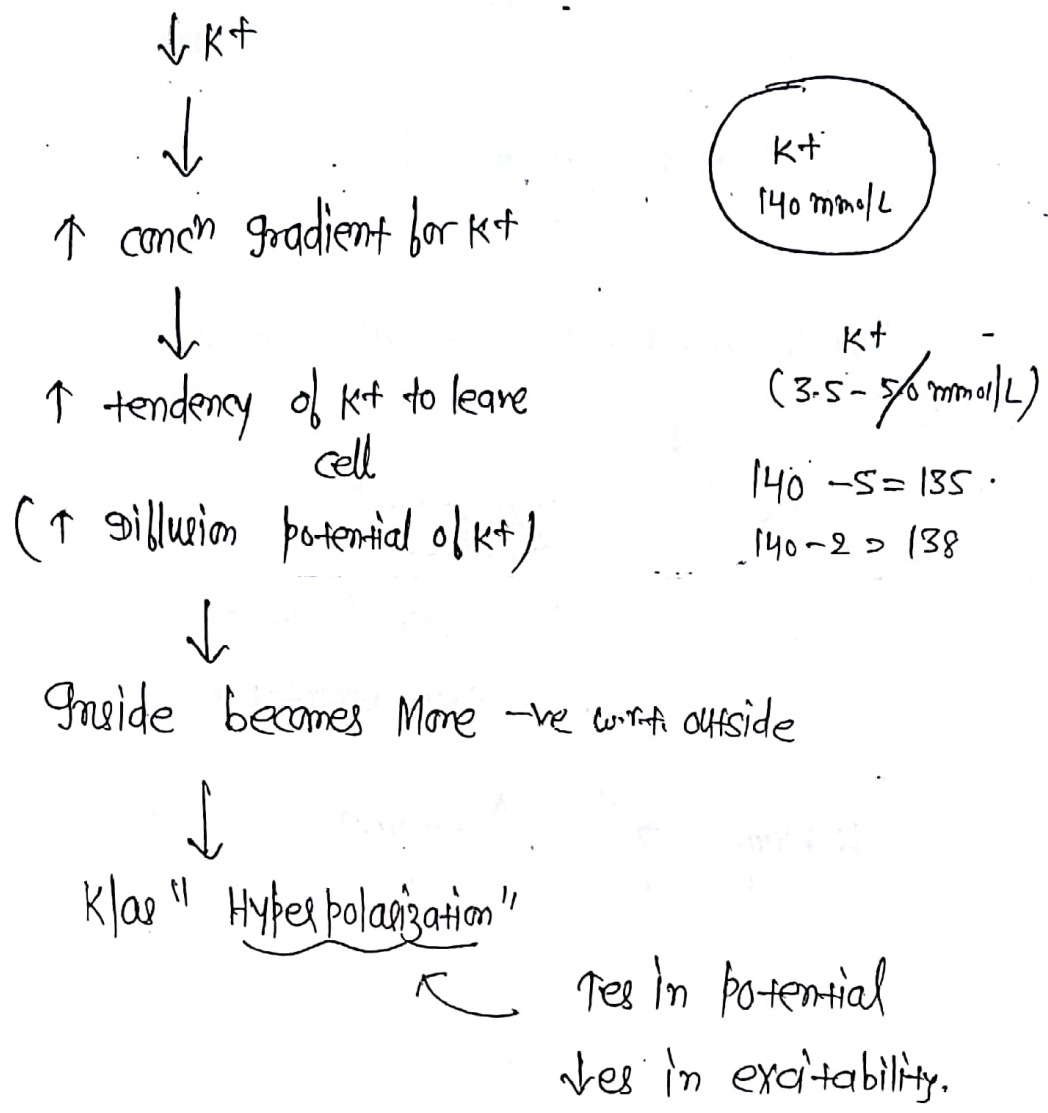 ↓ K+
↓
↑ concn gradient for K+
↓
↑ tendency of K+ to leave
cell
(↑ Diffusion potential of K+)
↓
Inside becomes More -ve w.r.t. outside
↓
K/as "Hyperpolarization"
↑es in potential
↓es in excitability.
K+
140 mmol/L
K+ -
(3.5 - 5.0 mmol/L)
140 - 5 = 135
140 - 2 = 138